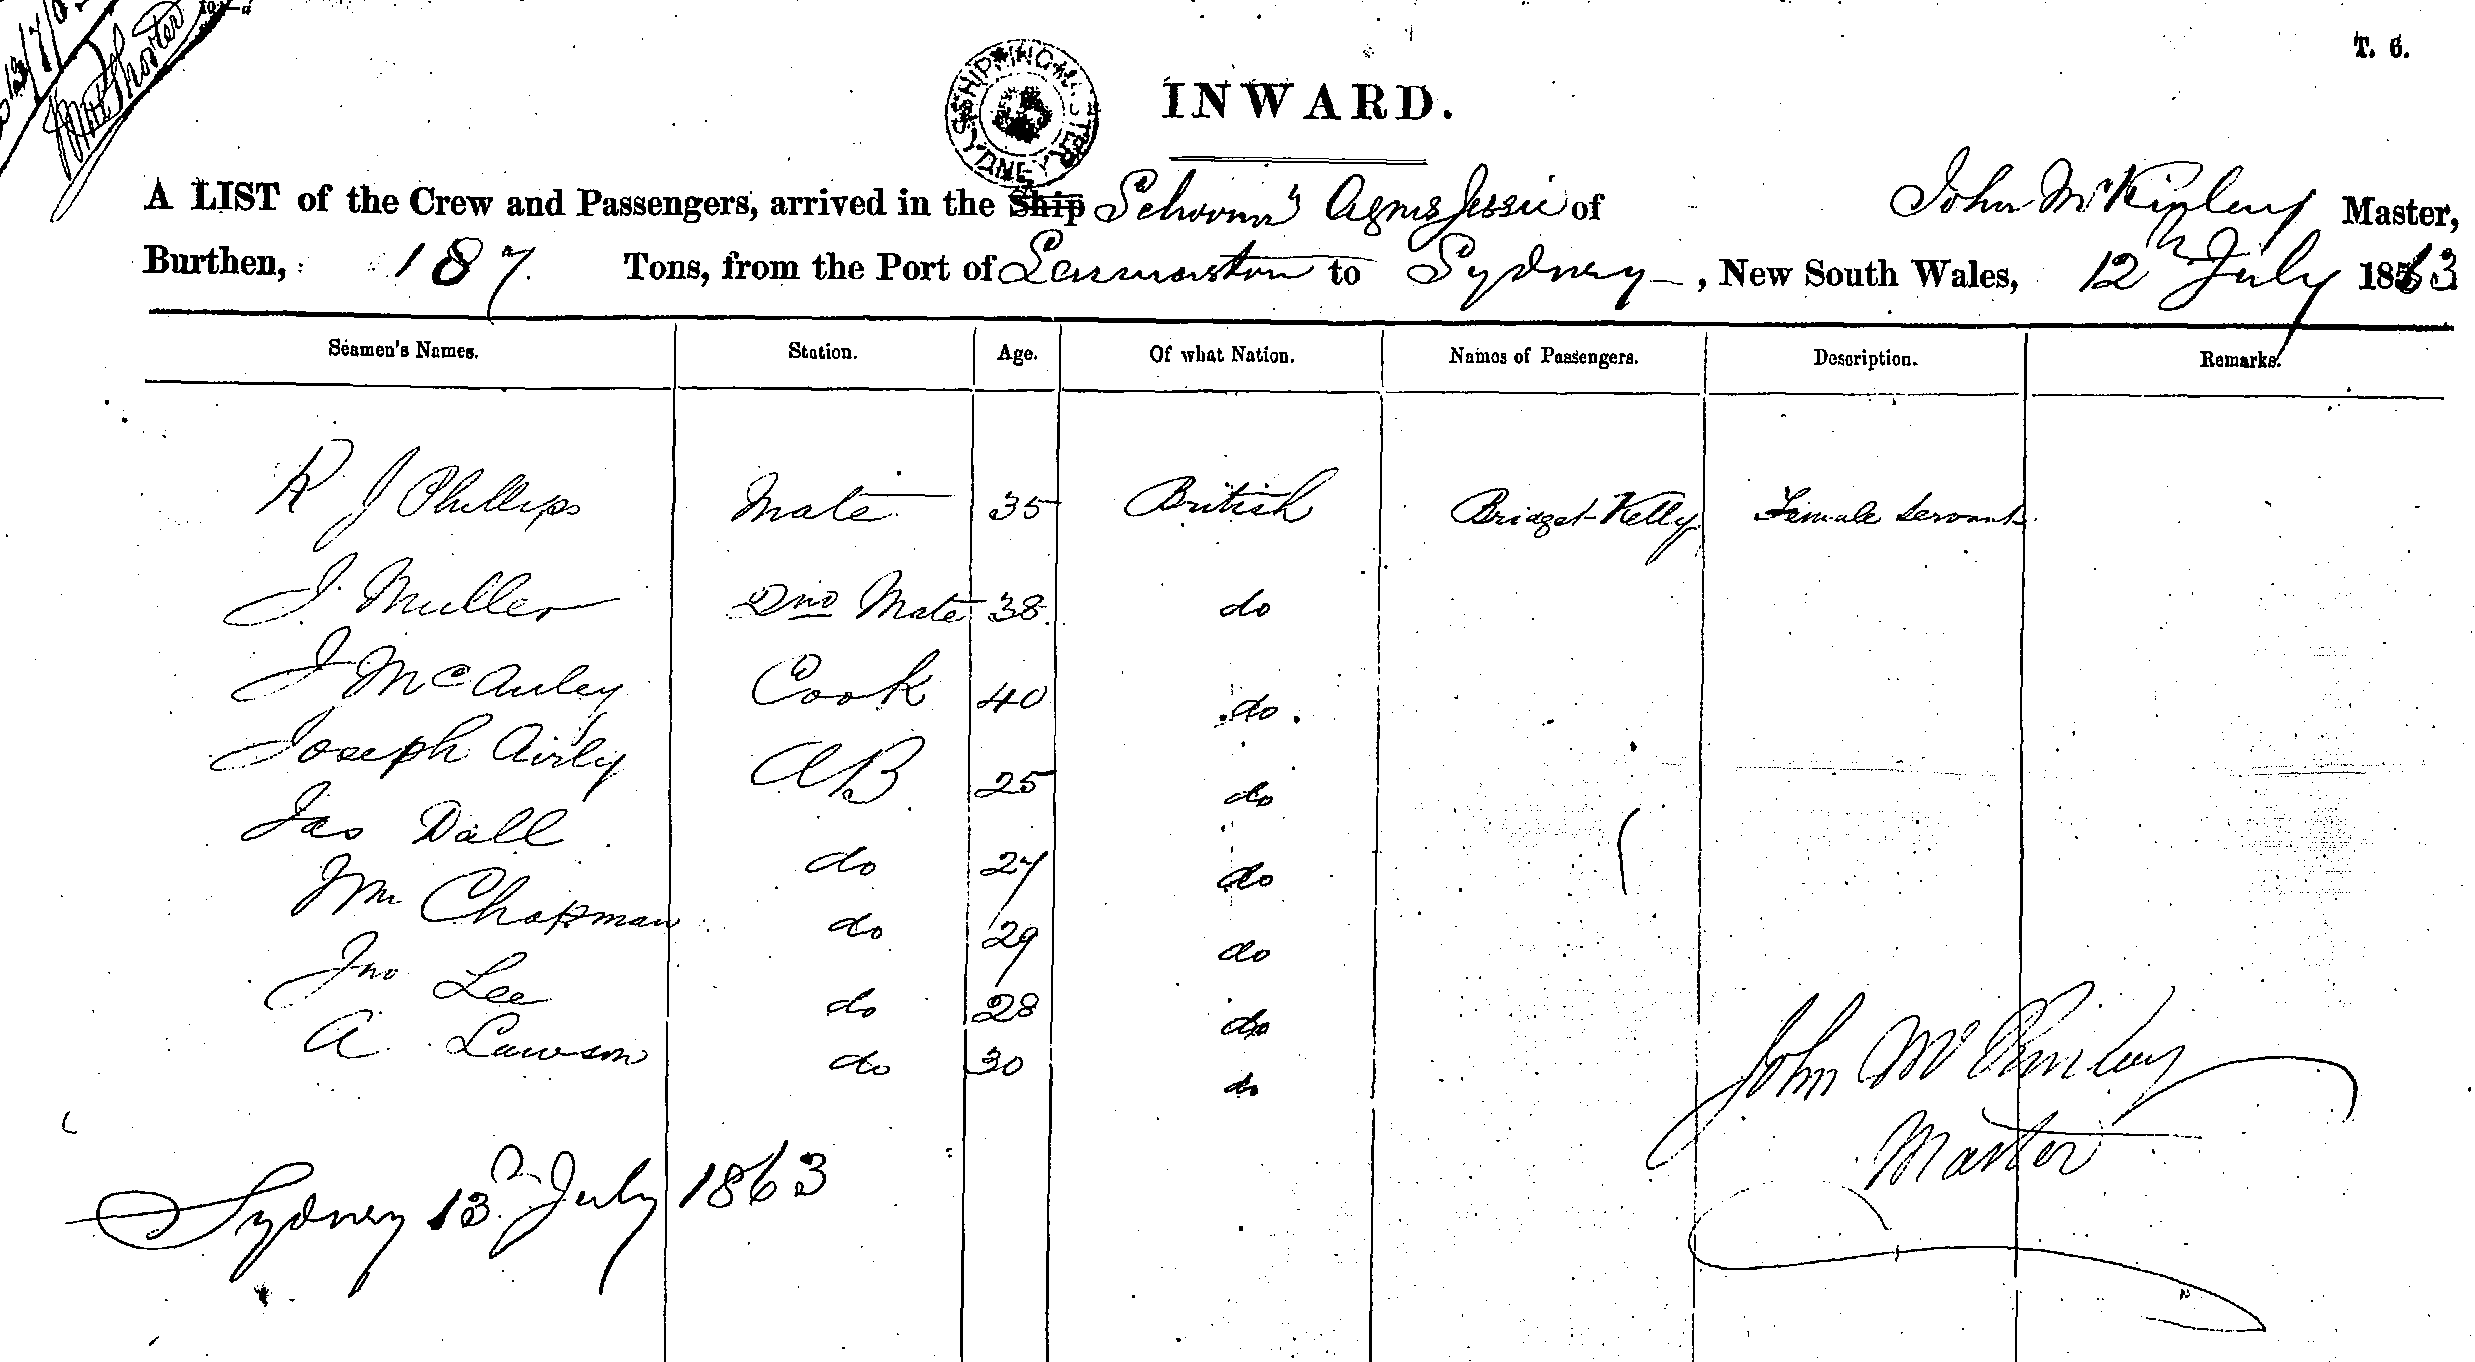 T. 6.
SHIPPING MASTER SYDNEY
INWARD.
A LIST of the Crew and Passengers, arrived in the Ship Schooner Agnes Jessie of John McKinlay Master,
Burthen, 187 Tons, from the Port of to Sydney, New South Wales, 12th July 1863
Seamen's Names. Station. Age. Of what Nation. Names of Passengers. Description. Remarks.
R J Phillips Mate 35 British Bridget Kelly Female Servant
J. Muller 2nd Mate 38 do
J McAuley Cook 40 do
Joseph Airly AB 25 do
Jas Dall do 27 do
Wm Chapman do 29 do
Jno Lee do 28 do
A Lawson do 30 do
John McKinlay
Master
Sydney 13th July 1863